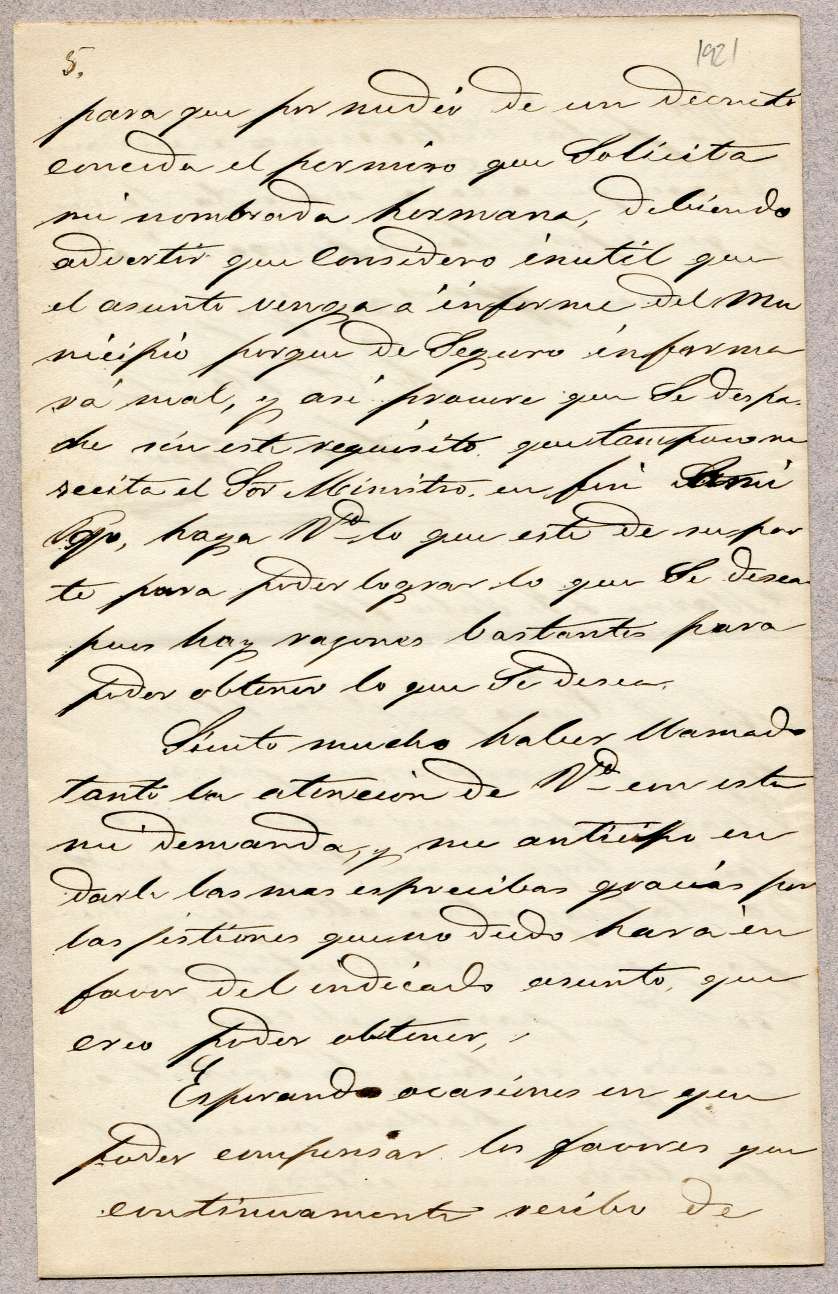 5.
1921
para que por medio de un decreto
conceda el permiso que Solicita
mi nombrada hermana, debiendo
advertir que Considero inutil que
el asunto venga a informe del Mu
nicipio porque de Seguro informa
rá mal, y asi procure que Se despa-
che sin este requisito que tampoco ne
secita el Sor Ministro. en fin Ami
go, haga Vd lo que este de su par
te para poder lograr lo que Se desea
pues hay razones bastantes para
poder obtener lo que Se desea.
Siento mucho haber llamado
tanto la atencion de Vd con esta
mi demanda, y me anticipo en
darle las mas esprecibas gracias por
las jestiones que no dudo hara en
favor del indicado asunto, que
creo poder obtener,
Esperando ocasiones en que
poder compensar los favores que
continuamente recibo de